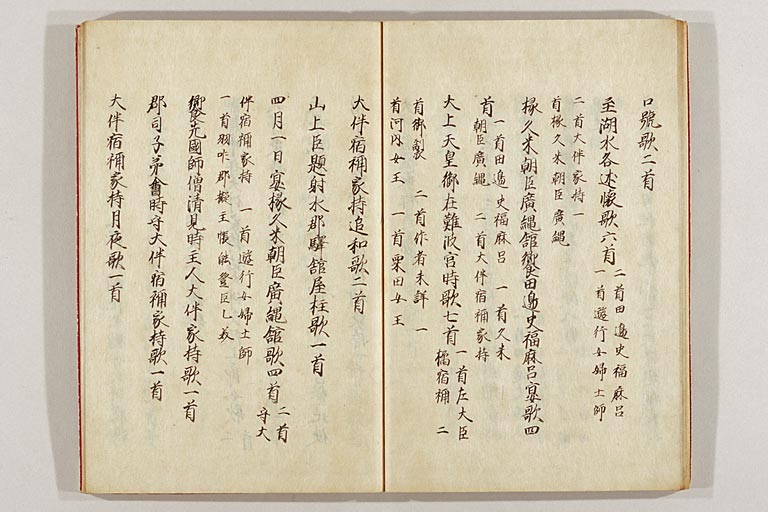 口號歌二首
至湖水各述懷歌六首
二首田邊史福麻呂
一首遊行女婦土師
二首大伴家持一
首掾久米朝臣廣繩
掾久米朝臣廣繩舘饗田邊史福麻呂宴歌四
首
一首田邊史福麻呂　一首久米
朝臣廣繩　二首大伴宿祢家持
大上天皇御在難波宮時歌七首
一首左大臣
橘宿祢　二
首御製　二首作者未詳　一
首河内女王　一首粟田女王
大伴宿祢家持追和歌二首
山上臣題射水郡驛舘屋柱歌一首
四月一日宴掾久米朝臣廣繩舘歌四首
二首
守大
伴宿祢家持　一首遊行女婦土師
一首羽咋郡擬主帳能登臣乙美
饗先國師僧清見時主人大伴家持歌一首
郡司子弟會時守大伴宿祢家持歌一首
大伴宿祢家持月夜歌一首